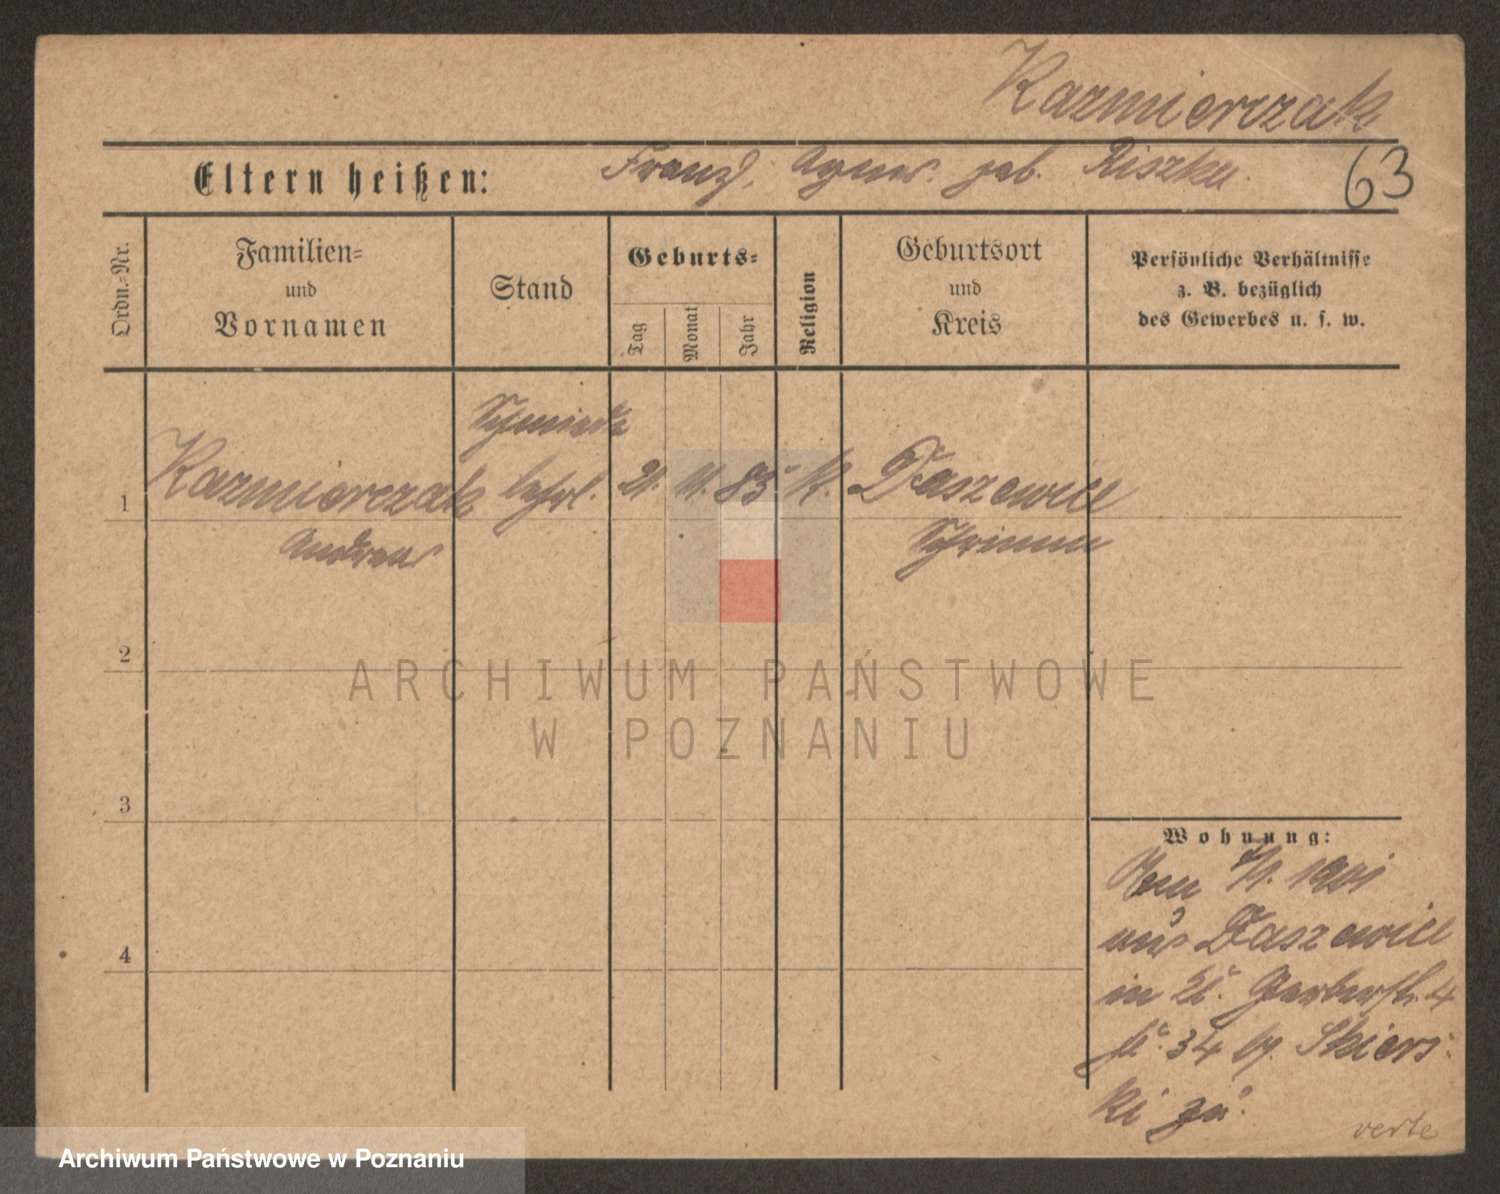 Kazmierczak
63
Eltern heißen: Franz, Agnes geb. Riszka.
Ordn.-Nr.
Familien-
und
Vornamen
Stand
Geburts-
Tag
Monat
Jahr
Religion
Geburtsort
und
Kreis
Persönliche Verhältnisse
z. B. bezüglich
des Gewerbes u. s. w.
Schmiede
1 Kazmierczak lehrl. 21. 11. 85. k. Daszewice
Andreas Schrimm
2
3
4
Wohnung:
1901
aus Daszewice
in Gerberstr. 4
34 Skiers-
ki zu.
verte
ARCHIWUM PAŃSTWOWE
W POZNANIU
Archiwum Państwowe w Poznaniu